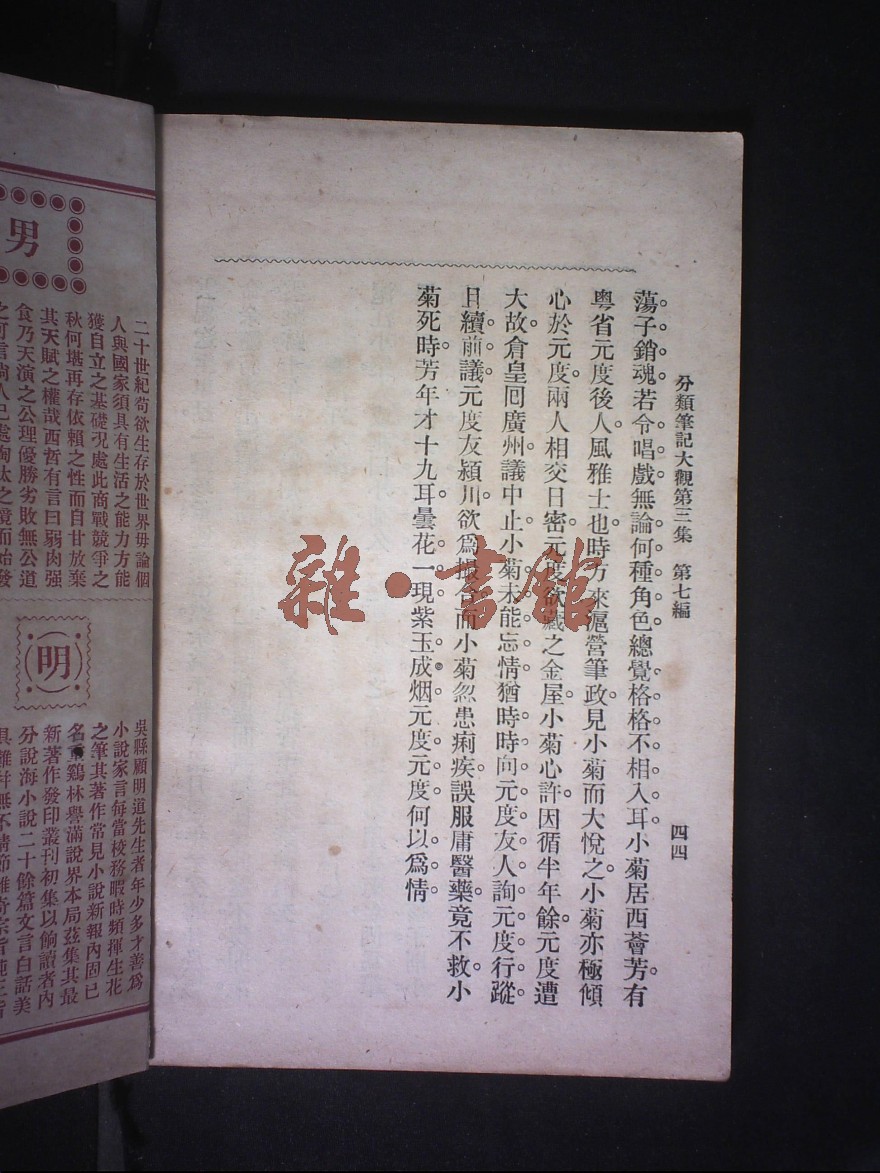 分類筆記大觀第三集　第七編
四四
蕩子銷魂。若令唱戲。無論何種角色。總覺格格不相入耳。小菊居西薈芳。有
粵省元度後人。風雅士也。時方來滬營筆政。見小菊而大悅之。小菊亦極傾
心於元度。兩人相交日密。元度欲藏之金屋。小菊心許。因循半年餘。元度遭
大故。倉皇囘廣州。議中止。小菊未能忘情。猶時時向元度友人詢元度行蹤。
且續前議。元度友潁川。欲爲撮合。而小菊忽患痢疾。誤服庸醫藥。竟不救。小
菊死時。芳年才十九耳。曇花一現。紫玉成烟。元度元度。何以爲情
雜·書館
男
二十世紀苟欲生存於世界毋論個
人與國家須具有生活之能力方能
獲自立之基礎况處此商戰競爭之
秋何堪再存依賴之性而自甘放棄
其天賦之權哉西哲有言曰弱肉强
食乃天演之公理優勝劣敗無公道
明
吳縣顧明道先生者年少多才善爲
小說家言每當校務暇時頻揮生花
之筆其著作常見小說新報內固已
名重鷄林譽滿說界本局茲集其最
新著作發印叢刊初集以餉讀者內
分說海小說二十餘篇文言白話美